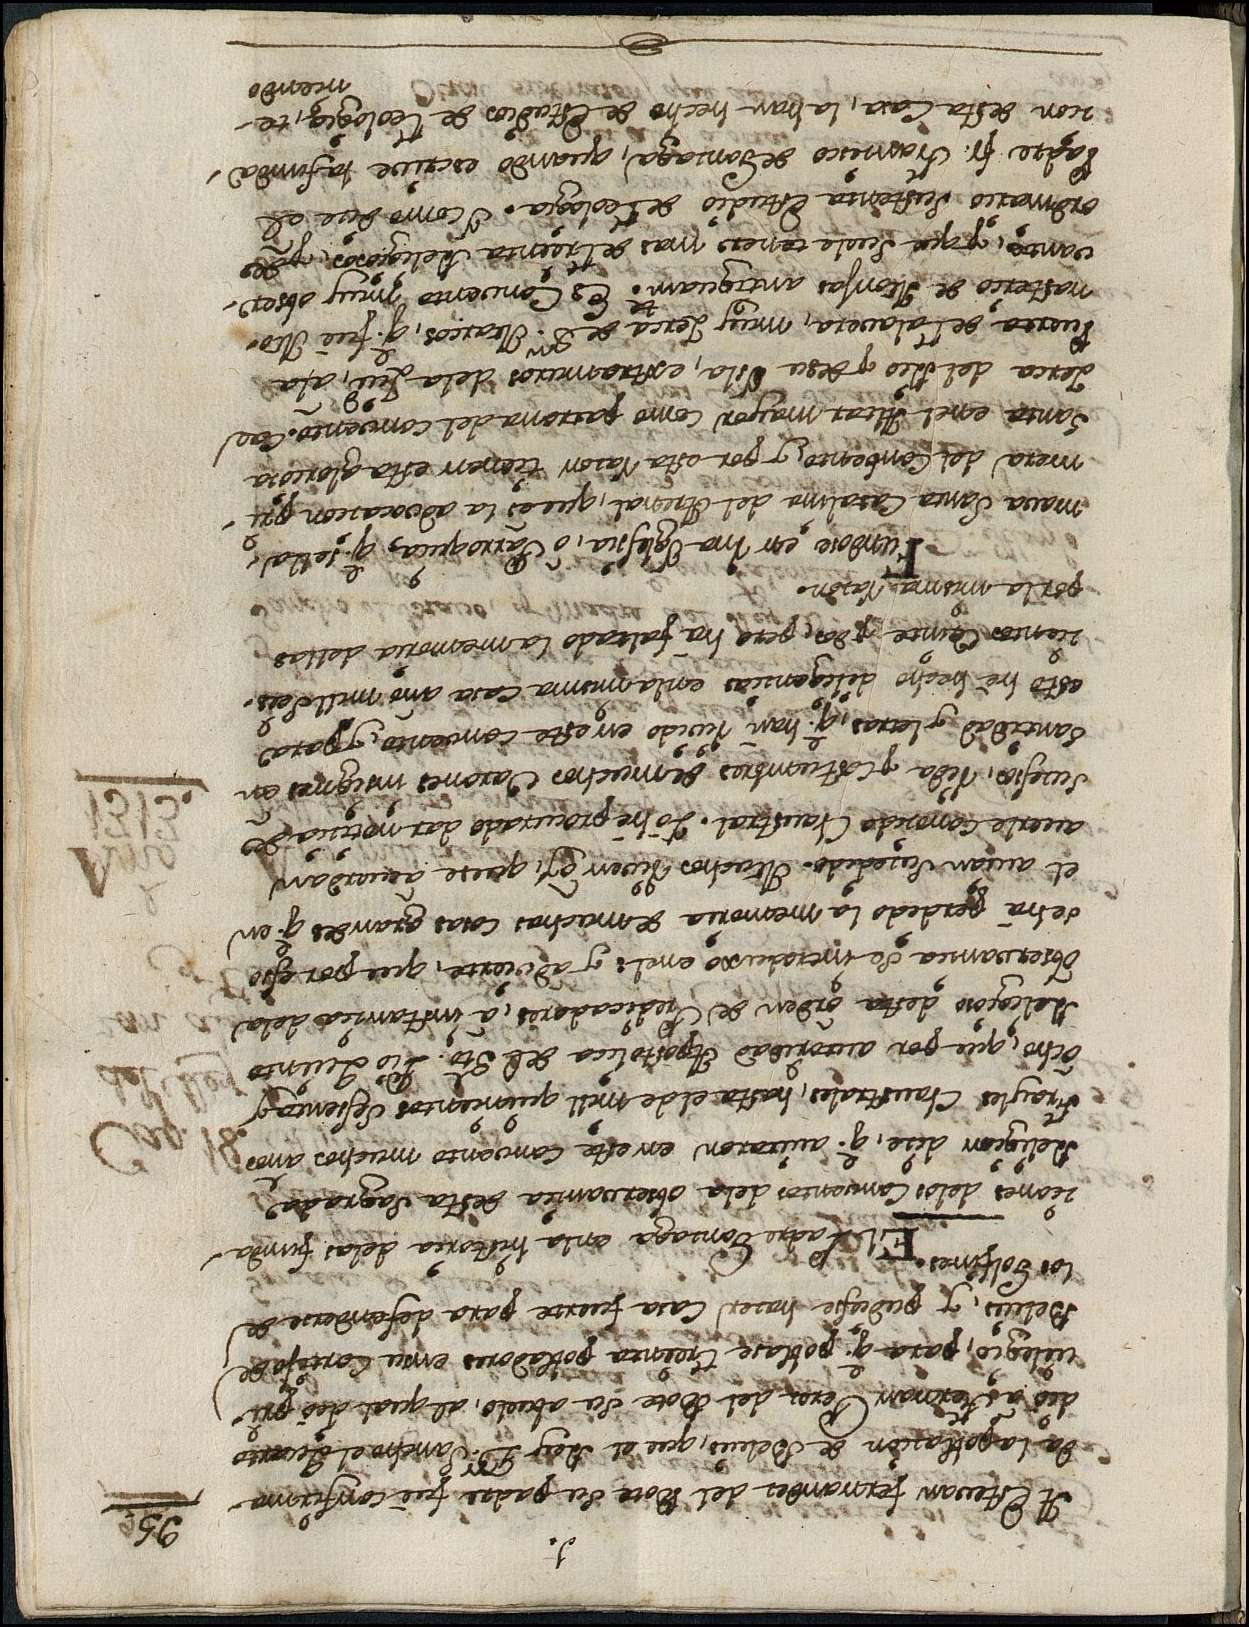 t.
95.
A Estevan fernandes del Bote su padre fuè confirma-
da la poblacion de Belvis, que el Rey Dn. Sancho el Quarto
diò à Hernan Perez del Bote su abuelo, al qual diò pri-
vilegio, para q. poblase treinta pobladores en su Cortijo de
Belvis, y pudiesse hacer Casa fuerte para defenderse de
los Golfines.
El Padre Gonzaga en la historia delas funda-
ciones delos Conventos dela observancia desta Sagrada
Religion dice, q. avitaron en este Convento muchos años
Frayles Claustrales, hasta el de mill quinientos sesenta y
ocho, que por autoridad Appostolica de Sto. Pio Quinto
Religioso desta orden de Predicadores, à instancia dela
Observancia se introduxo enel: y advierte, que por esso
se hà perdido la memoria de muchas cosas grandes q. en
el avian sucedido. Muchos viven oy, que se acuerdan
averle conocido Claustral. Yo he procurado dar noticia de
sucesso, vida y costumbres de muchos varones insignes en
santidad y letras, q. han vivido en este convento, y para
esto hè hecho diligencias en la misma casa año mill seis-
cientos veinte y dos, pero hà faltado la memoria dellas
por la misma razon.
Fundose en vna Iglesia, ò Parroquia, q. se lla-
mava Santa Catalina del Arenal, que es la advocacion pri-
mera del Convento, y por esta razon tienen esta gloriosa
Santa enel Altar mayor como patrona del convento. Cae
cerca del Rio y de su Isla, extramuros dela Ziu.d, à la
Puerta de Talavera, muy cerca de Sn. Marcos, q. fuè Mo-
nasterio de Monjas antiguam.te Es Convento muy obser-
vante, y que suele tener mas de treinta Religiosos, y de
ordinario sustenta Estudio de Teologia. Y como dice el
Padre fr. Francisco de Gonzaga, quando escrive la funda-
cion desta Casa, la han hecho de Estudios de Teologia, te-
niendo
Cap. 18.
del Rey
1313.